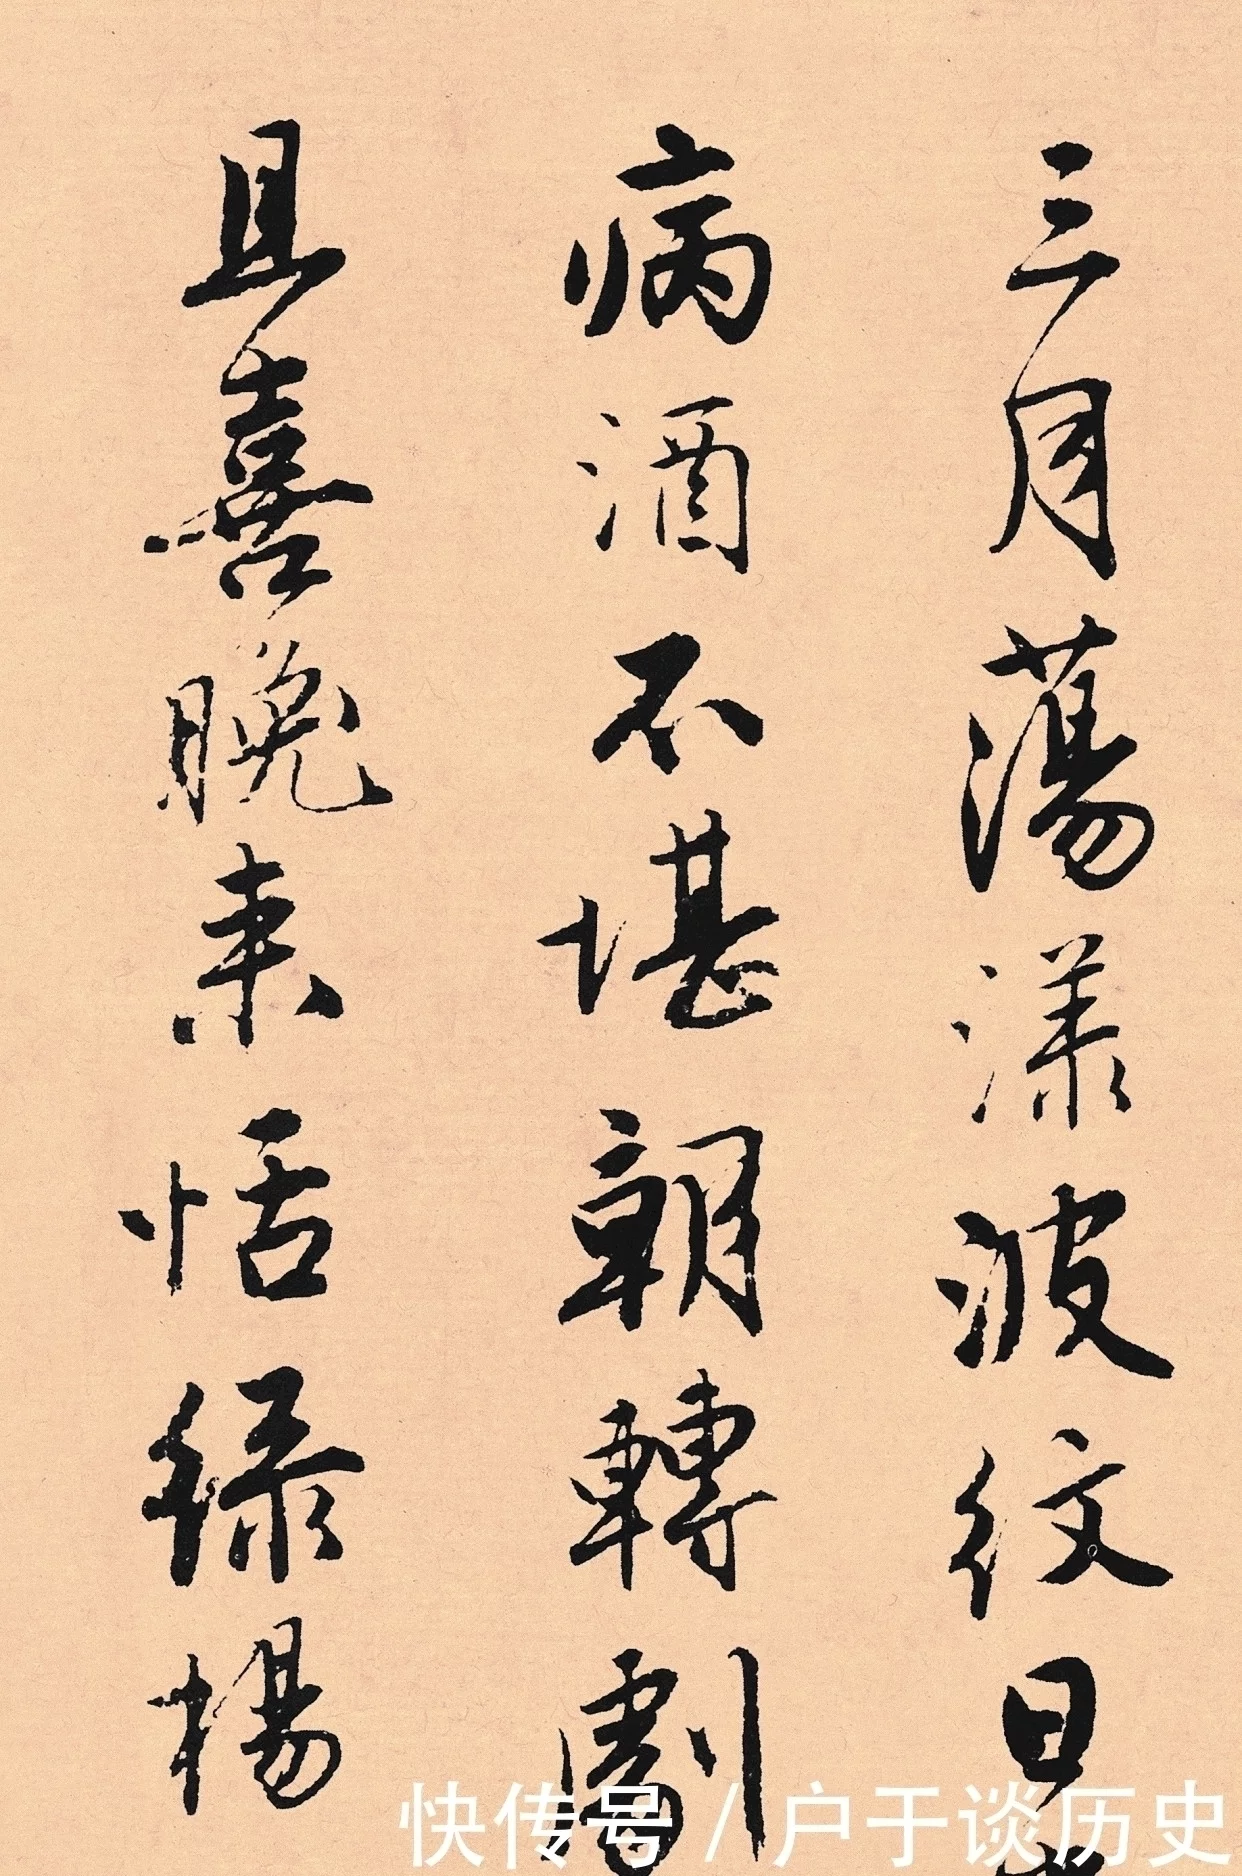 三月蕩漾波纹日
病酒不堪朝轉劇
且喜晚来恬緑楊
快传号/户于谈历史